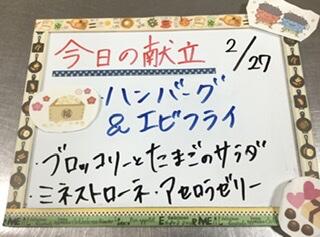 今日の献立 2/27
ハンバーグ
&エビフライ
・ブロッコリーとたまごのサラダ
・ミネストローネ・アセロラゼリー